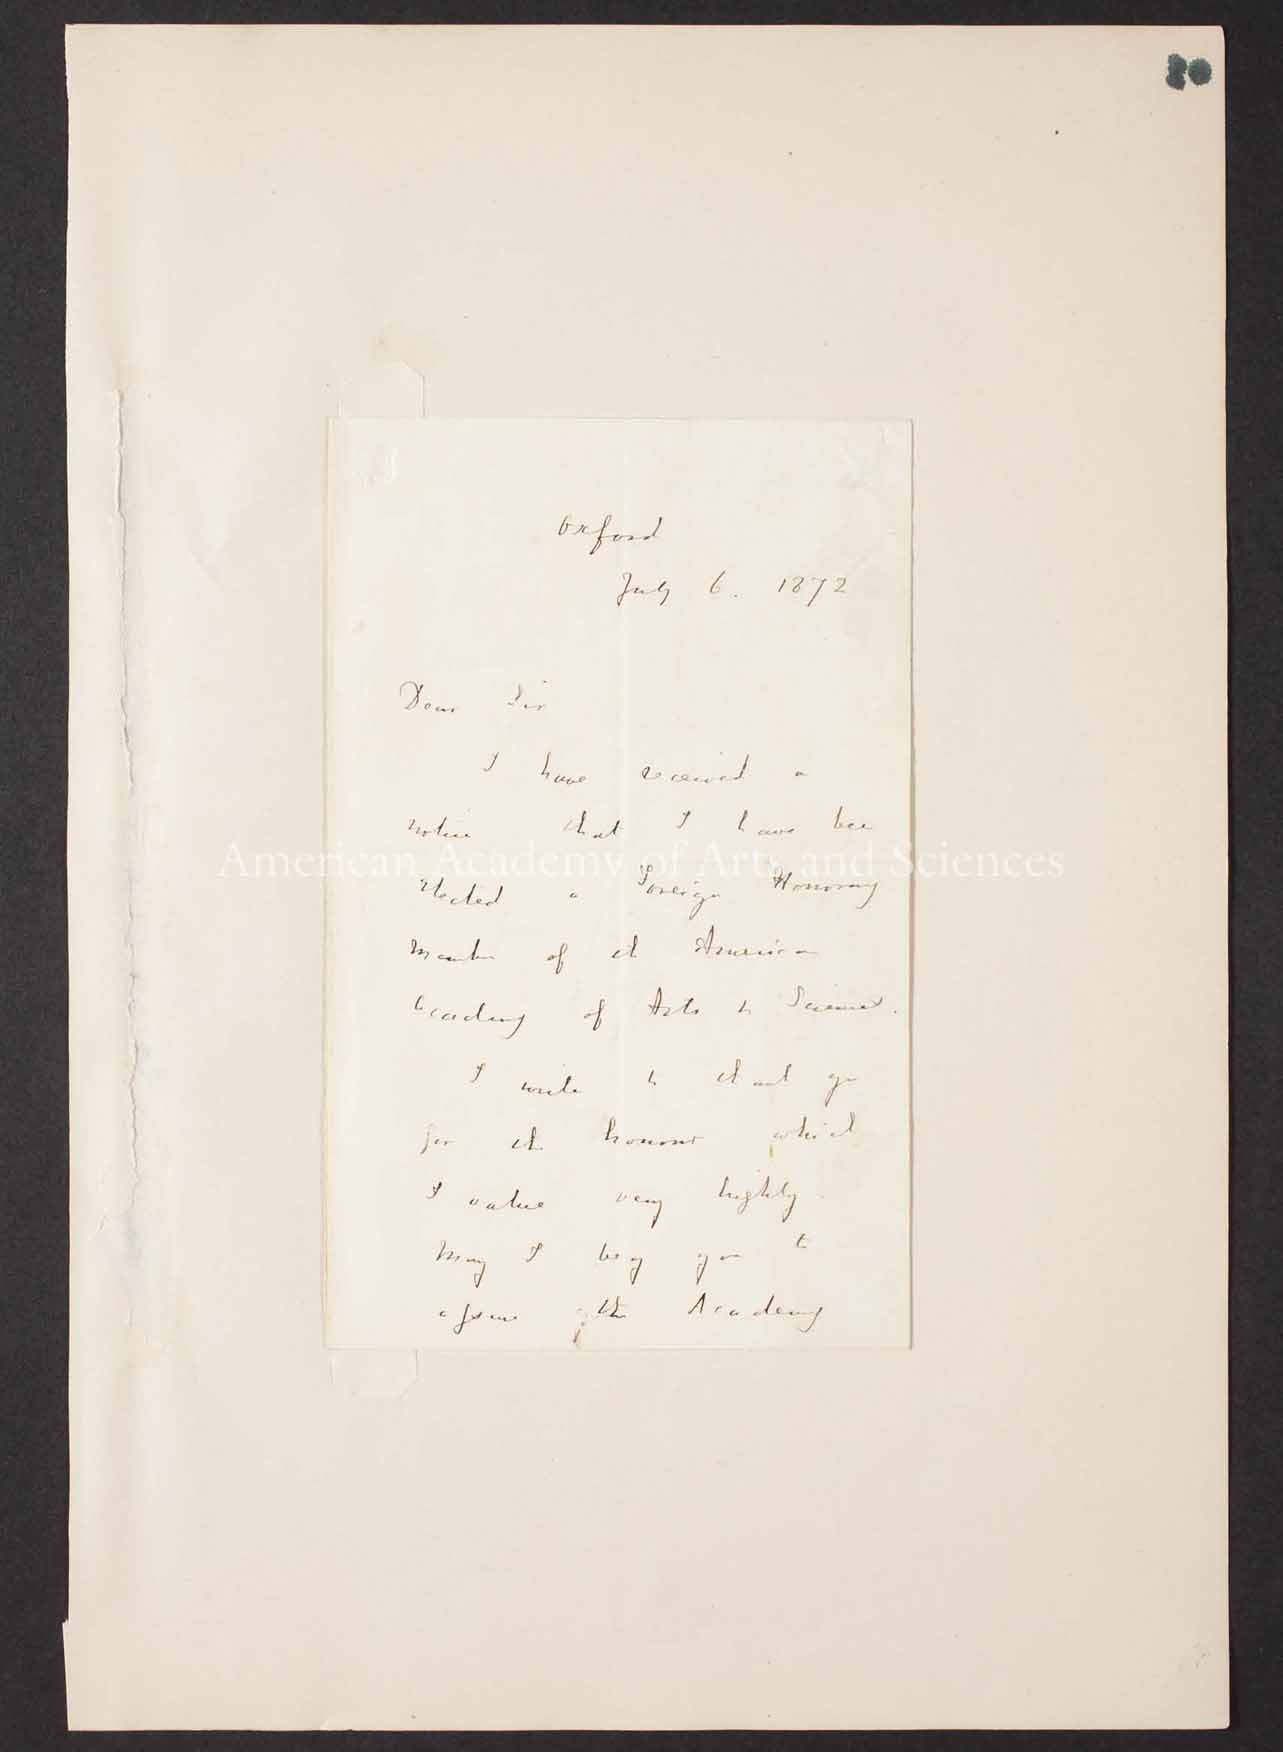 Oxford
July 6. 1872
Dear Sir
I have received a
notice that I have been
American Academy of Arts and Sciences
elected a Foreign Honorary
Member of the American
Academy of Arts & Sciences.
I write to thank you
for the honour which
I value very highly.
May I beg you to
assure the Academy